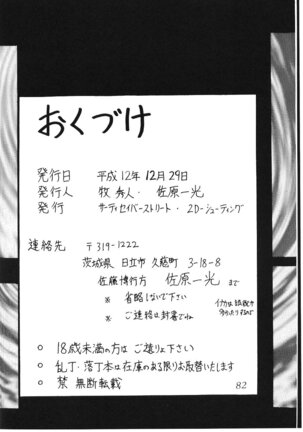 おくづけ
発行日 平成12年12月29日
発行人 牧 秀人・佐原一光
発行 サーティセイバーストリート・2D-シューティング
連絡先 〒319-1222
茨城県 日立市 久慈町 3-18-8
佐藤博行方 佐原一光 まで
※ 省略しないで下さい
※ ご連絡は封書でね
○ 18歳未満の方はご遠りょ下さい
○ 乱丁・落丁本は在庫のある限りお取替いたします
○ 禁 無断転載
82